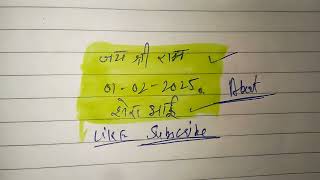 जय श्री राम
01-02-2025.
शेरा भाई
About
LIKE Subscribe